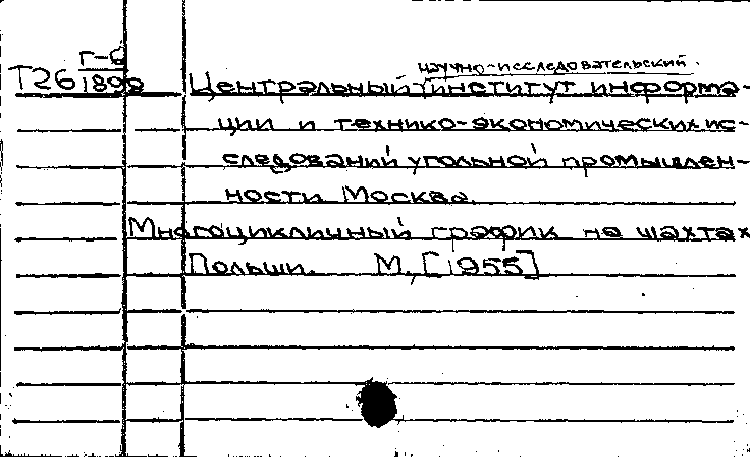 Г-6
Т26 1890 Центральный научно-исследовательский институт информа-
ции и технико-экономических ис-
следований угольной промышлен-
ности Москва.
Многоцикличный график на шахтах
Польши. М, [1955]